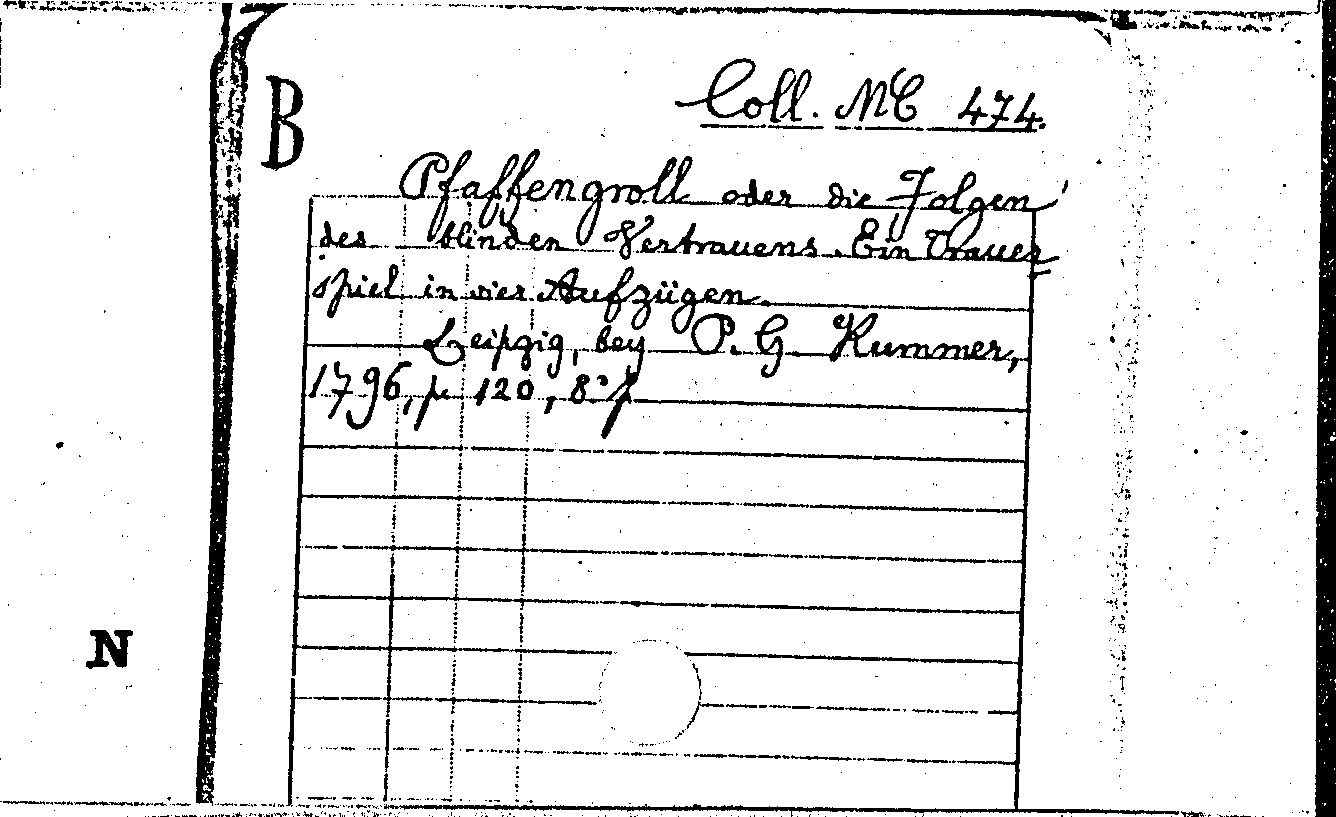 B
Coll. MC 474.
Pfaffengroll oder die Folgen
des blinden Vertrauens. Ein Trauer=
spiel in vier Aufzügen.
Leipzig, bey P. G. Kummer,
1796, p 120, 8°
N